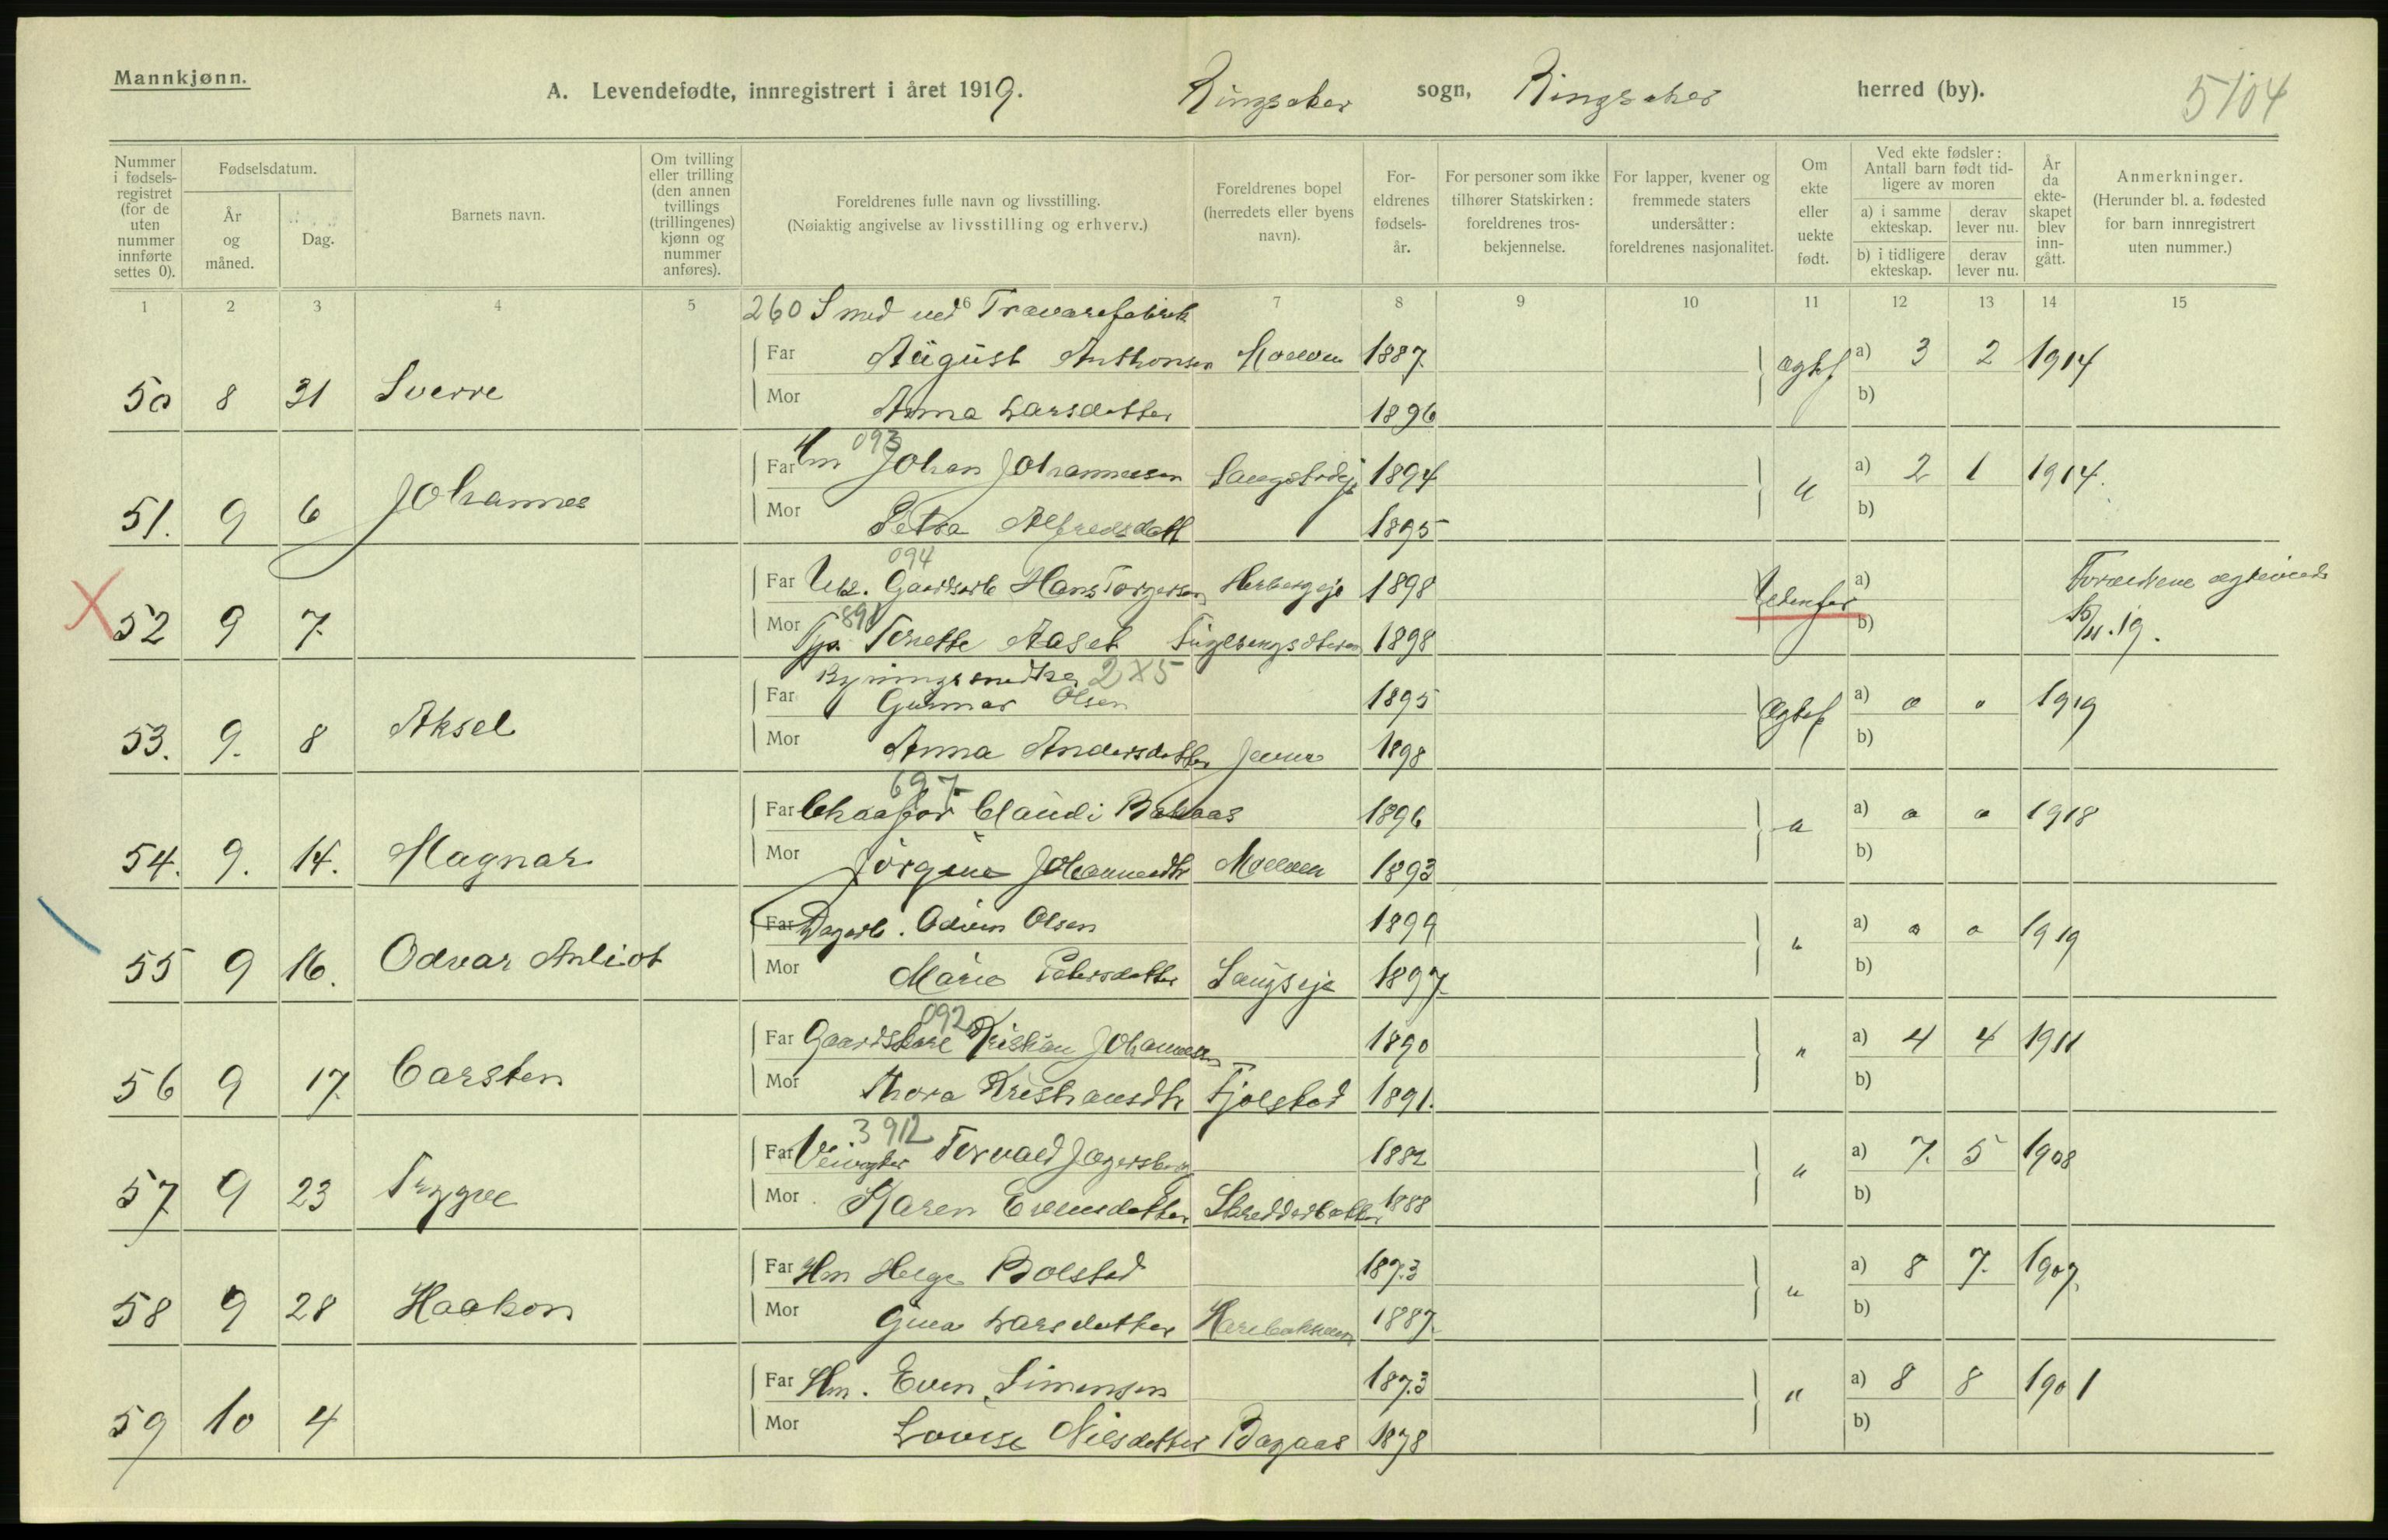 Mannkjønn.
A. Levendefødte, innregistrert i året 1919. Ringsaker sogn, Ringsaker herred (by). 5104
Nummer i fødsels-registret (for de uten nummer innførte settes 0).
Fødselsdatum.
År og måned.
Dag.
Barnets navn.
Om tvilling eller trilling (den annen tvillings (trillingenes) kjønn og nummer anføres).
Foreldrenes fulle navn og livsstilling.
(Nøiaktig angivelse av livsstilling og erhverv.)
Foreldrenes bopel (herredets eller byens navn).
For-eldrenes fødsels-år.
For personer som ikke tilhører Statskirken: foreldrenes tros-bekjennelse.
For lapper, kvener og fremmede staters undersåtter: foreldrenes nasjonalitet.
Om ekte eller uekte født.
Ved ekte fødsler: Antall barn født tid-ligere av moren
a) i samme ekteskap.
derav lever nu.
b) i tidligere ekteskap.
derav lever nu.
År da ekte-skapet blev inn-gått.
Anmerkninger.
(Herunder bl. a. fødested for barn innregistrert uten nummer.)
1 2 3 4 5 6 7 8 9 10 11 12 13 14 15
260 Smed ved Trævarefabrik
Far August Anthonsen Moelven 1887. a) 3 2 1914
50 8 31 Sverre Ægtef
Mor Anna Larsdatter 1896 b)
093
Far Hm Johan Johannessen 1894 a) 2 1 1914.
51. 9 6 Johannes "
Mor Petra Alfredsdatt 1895 b)
094
Far Uk. Gaardsarb Hans Torgersen 1898 a) Forældrene
X 52 9 7.
891
Mor Tenette Aaset 1898 b) 19.
2X5
Far Gunnar Olsen 1895 a) 0 0 1919
53. 9. 8 Aksel Ægtef
Mor Anna Andersdatter 1898 b)
697
Far Chaafør Claudi 1896 a) 0 0 1918
54. 9. 14. Magnar "
Mor Jörgine Moelven 1893 b)
Far Dagarb. Odvin Olsen 1899 a) 0 0 1919
55 9 16. Odvar "
Mor Marie Petersdatter 1897. b)
092
Far Kristian Johannessen 1890 a) 4 4 1911
56 9 17. Carsten "
Mor Thora Fjølstad 1891. b)
3 912
Far Veivogter Torvald 1882 a) 7. 5 1908
57. 9 23 Trygve "
Mor Karen Evensdatter Skredderbakken 1888 b)
Far Hm Helge Bolstad 1873 a) 8 7. 1907.
58 9 28 Haakon "
Mor Gina Larsdatter 1887. b)
Far Hm. Even Simensen 1873 a) 8 8 1901
59 10 4 "
Mor Lovise Nilsdatter Bagaas 1878 b)